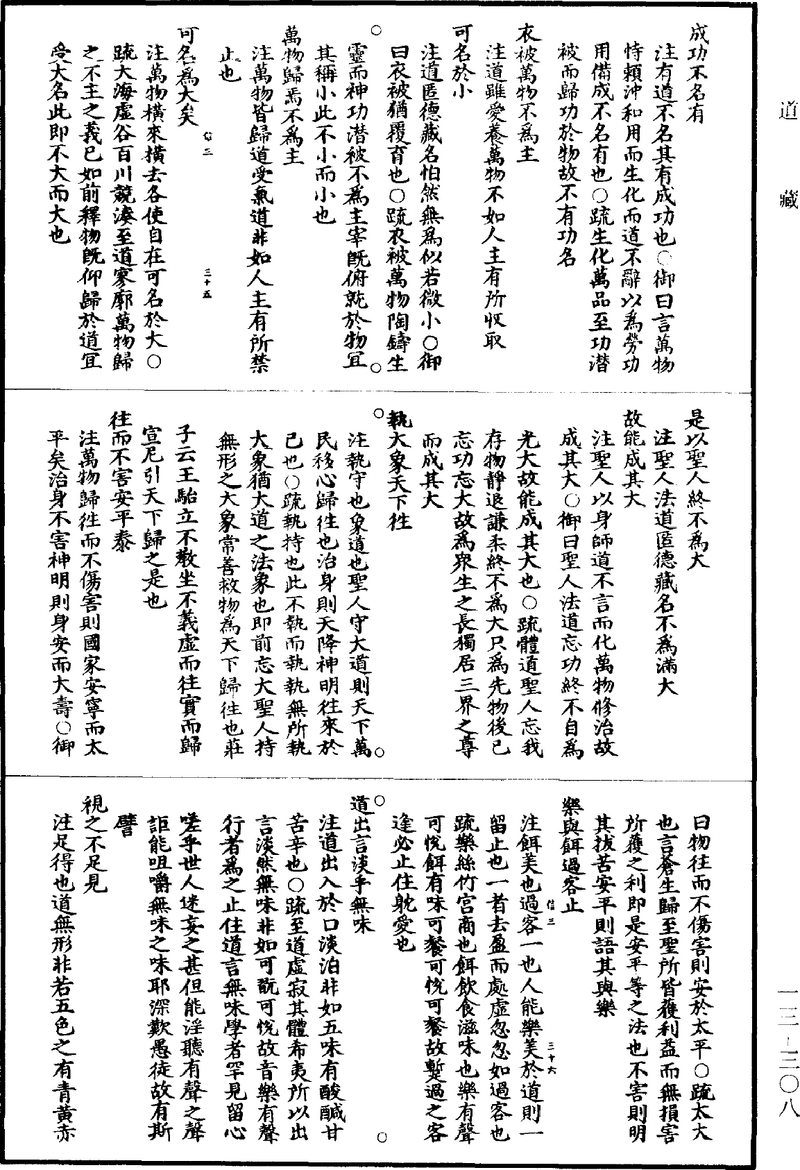 道藏
成功不名有
注有道不名其有成功也○御曰言萬物
恃賴沖和用而生化而道不辭以為勞功
用備成不名有也○疏生化萬品至功潛
被而歸功於物故不有功名
衣被萬物不為主
注道雖愛養萬物不如人主有所收取
可名於小
注道匿德藏名怕然無為似若微小○御
曰衣被猶覆育也○疏衣被萬物陶鑄生
靈而神功潛被不為主宰既俯就於物宜
其稱小此不小而小也
萬物歸焉不為主
注萬物皆歸道受氣道非如人主有所禁
止也
可名為大矣
信二
三十五
注萬物橫來橫去各使自在可名於大○
疏大海虛谷百川競湊至道寥廓萬物歸
之不主之義已如前釋物既仰歸於道宜
受大名此即不大而大也
是以聖人終不為大
注聖人法道匿德藏名不為滿大
故能成其大
注聖人以身師道不言而化萬物修治故
成其大○御曰聖人法道忘功終不自為
光大故能成其大也○疏體道聖人忘我
存物靜退謙柔終不為大只為先物後己
忘功忘大故為眾生之長獨居三界之尊
而成其大
執大象天下往
注執守也象道也聖人守大道則天下萬
民移心歸往也治身則天降神明往來於
己也○疏執持也此不執而執執無所執
大象猶大道之法象也即前忘大聖人持
無形之大象常善救物為天下歸往也莊
子云王駘立不教坐不義虛而往實而歸
宣尼引天下歸之是也
往而不害安平泰
注萬物歸往而不傷害則國家安寧而太
平矣治身不害神明則身安而大壽○御
曰物往而不傷害則安於太平○疏太大
也言蒼生歸至聖所皆獲利益而無損害
所獲之利即是安平等之法也不害則明
其拔苦安平則語其與樂
樂與餌過客止
信三
三十六
注餌美也過客一也人能樂美於道則一
留止也一者去盈而處虛忽忽如過客也
疏樂絲竹宮商也餌飲食滋味也樂有聲
可悅餌有味可餐可悅可餐故蹔過之客
逢必止住躭愛也
道出言淡乎無味
注道出入於口淡泊非如五味有酸鹹甘
苦辛也○疏至道虛寂其體希夷所以出
言淡然無味非如可翫可悅故音樂有聲
行者為之止住道言無味學者罕見留心
嗟乎世人迷妄之甚但能淫聽有聲之聲
詎能咀嚼無味之味耶深歎愚徒故有斯
譬
視之不足見
注足得也道無形非若五色之有青黃赤
一三-三〇八